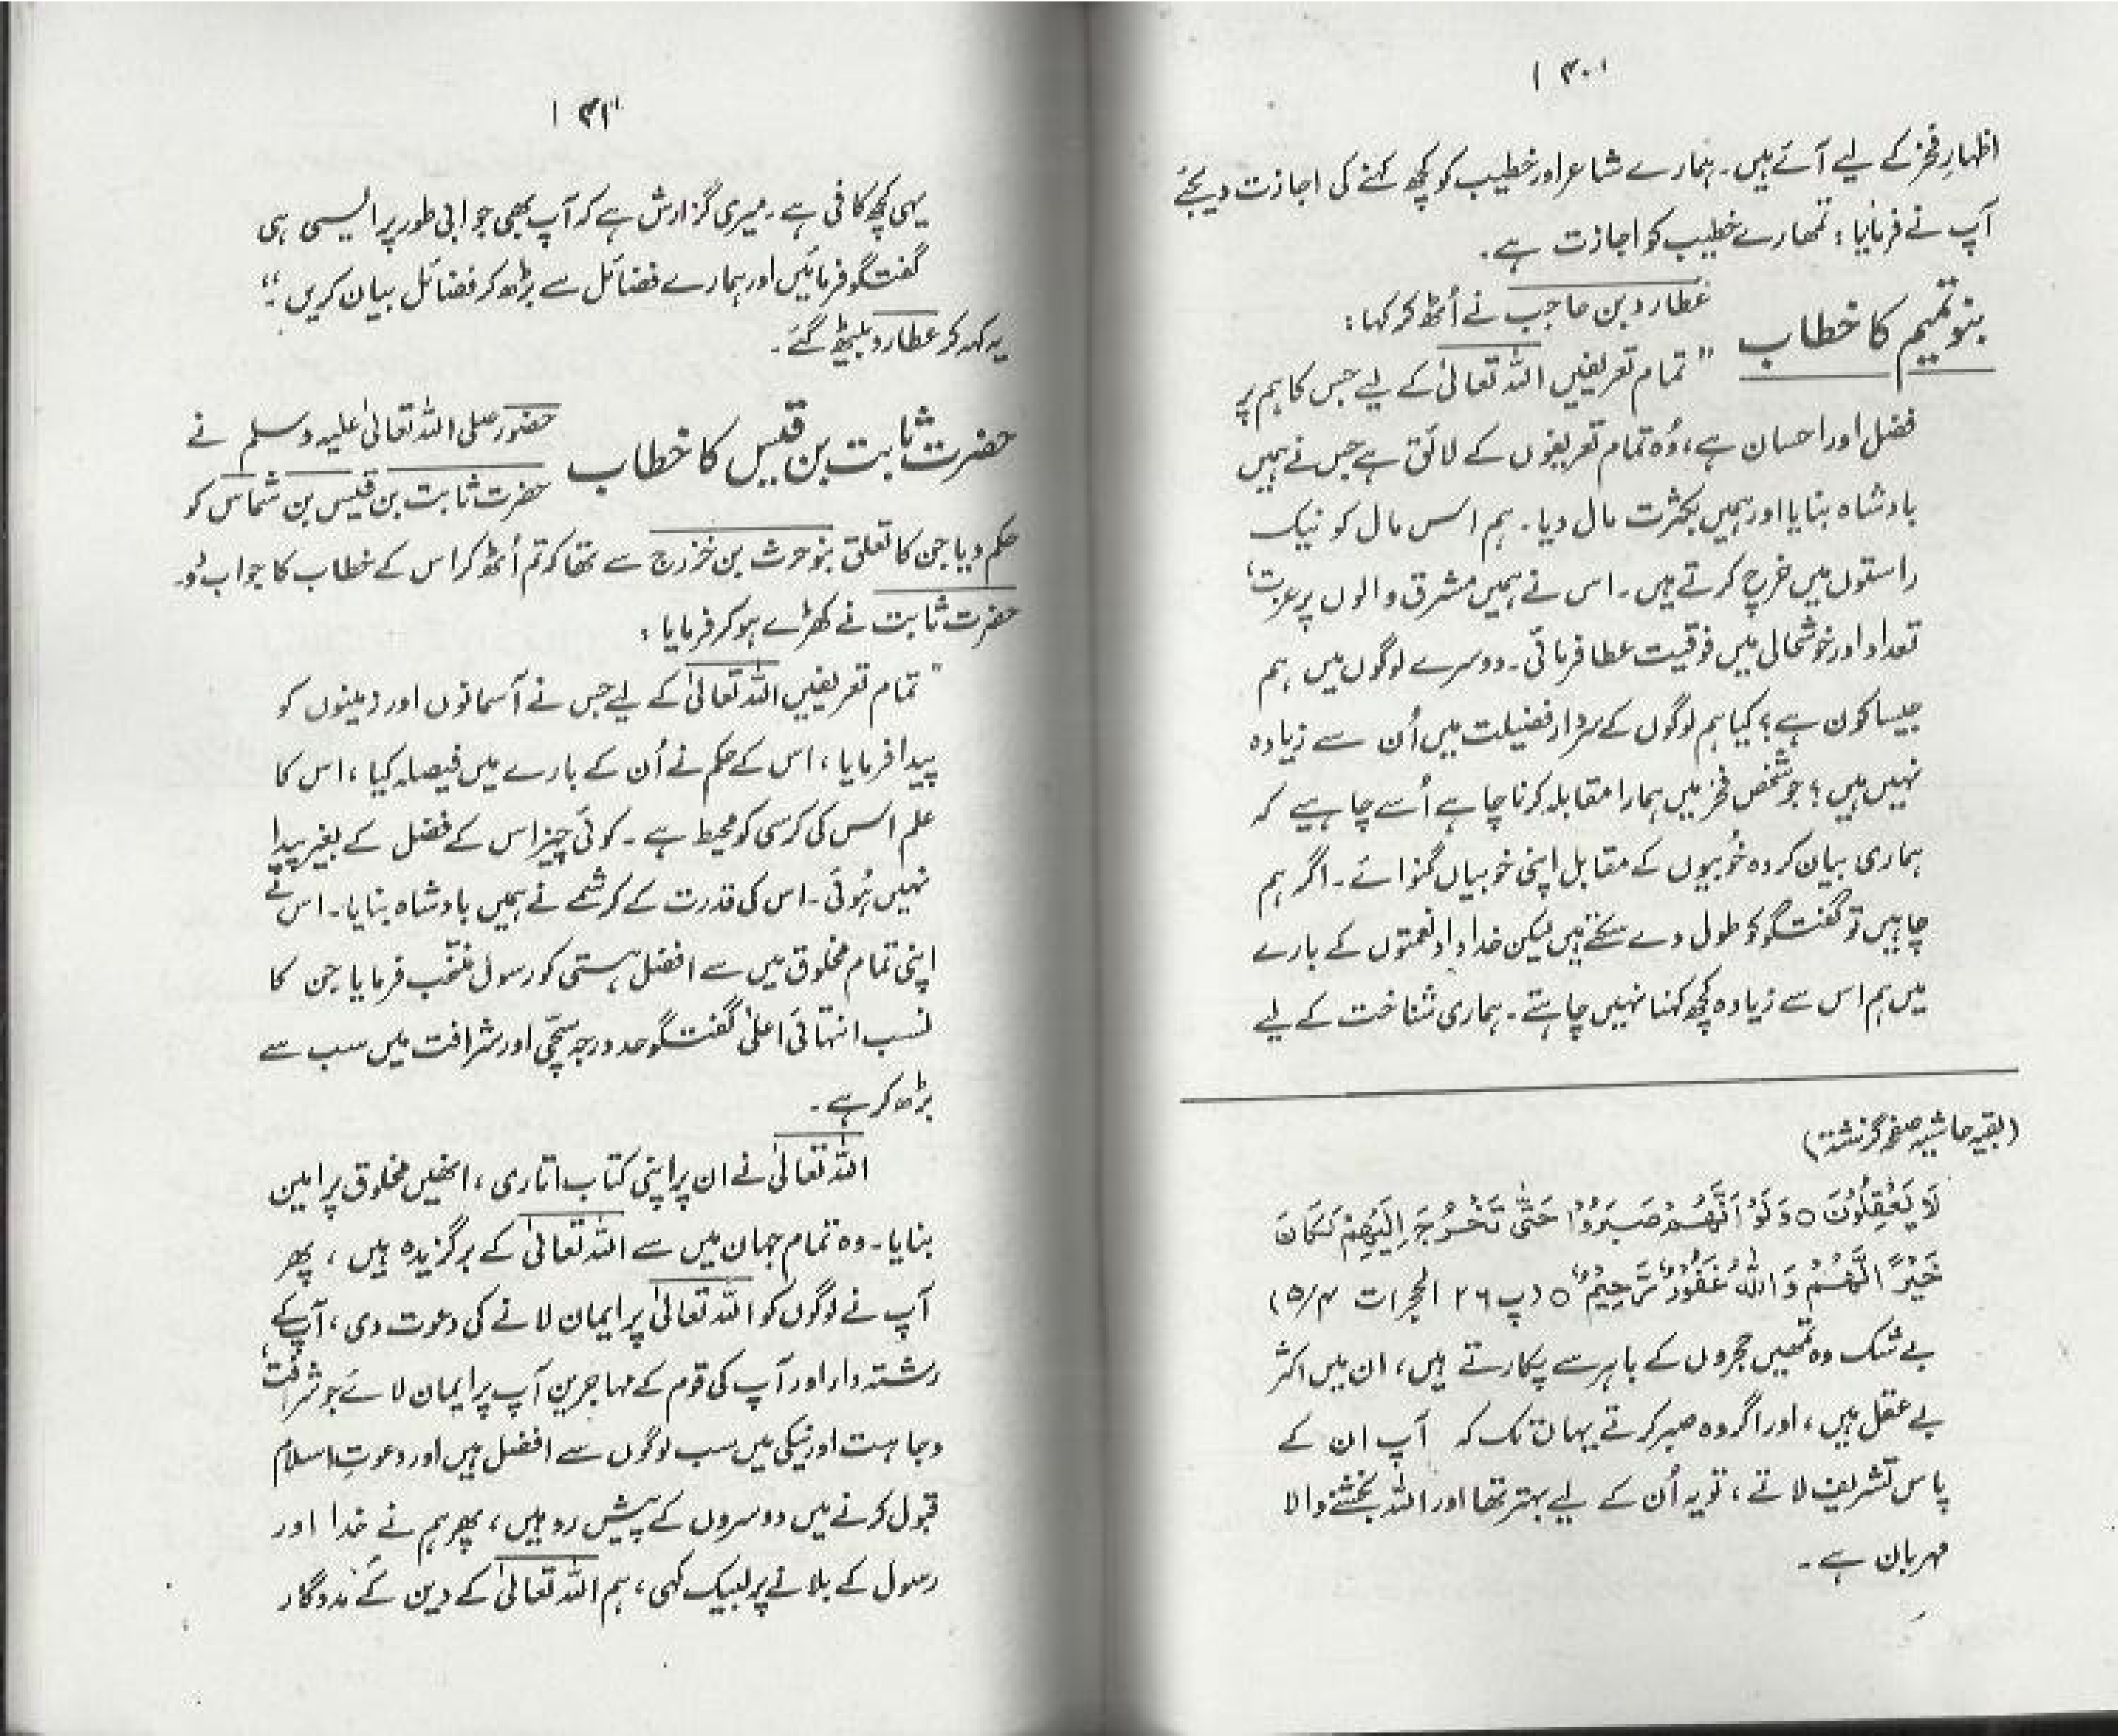 ۳۰۱
اظہارِ فخر کے لیے آئے ہیں۔ ہمارے شاعر اور خطیب کو کچھ کہنے کی اجازت دیجئے
آپ نے فرمایا: تمھارے خطیب کو اجازت ہے۔
بنو تمیم کا خطاب
عطارد بن حاجب نے اُٹھ کر کہا:
"تمام تعریفیں اللہ تعالیٰ کے لیے جس کا ہم پر
فضل اور احسان ہے، وُہ تمام تعریفوں کے لائق ہے جس نے ہمیں
بادشاہ بنایا اور ہمیں بکثرت مال دیا۔ ہم اس مال کو نیک
راستوں میں خرچ کرتے ہیں۔ اس نے ہمیں مشرق والوں پر عزت،
تعداد اور خوشحالی میں فوقیت عطا فرمائی۔ دوسرے لوگوں میں ہم
جیسا کون ہے؟ کیا ہم لوگوں کے سردار فضیلت میں اُن سے زیادہ
نہیں ہیں؟ جو شخص فخر میں ہمارا مقابلہ کرنا چاہے اُسے چاہیے کہ
ہماری بیان کردہ خُوبیوں کے مقابل اپنی خوبیاں گنوائے۔ اگر ہم
چاہیں تو گفتگو کو طول دے سکتے ہیں لیکن خداداد نعمتوں کے بارے
میں ہم اس سے زیادہ کچھ کہنا نہیں چاہتے۔ ہماری شناخت کے لیے
(بقیہ حاشیہ صفحہ گزشتہ)
لَا یَعْقِلُوْنَ ○ وَلَوْ اَنَّھُمْ صَبَرُوْا حَتّٰی تَخْرُجَ اِلَیْھِمْ لَکَانَ
خَیْرًا لَّھُمْ وَاللّٰہُ غَفُوْرٌ رَّحِیْمٌ ○ (پ ۲۶ الحجرات ۵/۴)
بے شک وہ تمھیں حجروں کے باہر سے پکارتے ہیں، ان میں اکثر
بے عقل ہیں، اور اگر وہ صبر کرتے یہاں تک کہ آپ ان کے
پاس تشریف لاتے، تو یہ اُن کے لیے بہتر تھا اور اللہ بخشنے والا
مہربان ہے۔
یہی کچھ کافی ہے۔ میری گزارش ہے کہ آپ بھی جوابی طور پر ایسی ہی
گفتگو فرمائیں اور ہمارے فضائل سے بڑھ کر فضائل بیان کریں۔"
یہ کہہ کر عطارد بیٹھ گئے۔
حضرت ثابت بن قیس کا خطاب
حضور صلی اللہ تعالیٰ علیہ وسلم نے
حضرت ثابت بن قیس بن شماس کو
حکم دیا جن کا تعلق بنو حرث بن خزرج سے تھا کہ تم اُٹھ کر اس کے خطاب کا جواب دو۔
حضرت ثابت نے کھڑے ہو کر فرمایا:
"تمام تعریفیں اللہ تعالیٰ کے لیے جس نے آسمانوں اور زمینوں کو
پیدا فرمایا، اس کے حکم نے اُن کے بارے میں فیصلہ کیا، اس کا
علم اس کی کرسی کو محیط ہے۔ کوئی چیز اس کے فضل کے بغیر پیدا
نہیں ہُوئی۔ اس کی قدرت کے کرشمے نے ہمیں بادشاہ بنایا۔ اس نے
اپنی تمام مخلوق میں سے افضل ہستی کو رسول منتخب فرمایا جن کا
نسب انتہائی اعلیٰ گفتگو حد درجہ سچّی اور شرافت میں سب سے
بڑھ کر ہے۔
اللہ تعالیٰ نے ان پر اپنی کتاب اتاری، انھیں مخلوق پر امین
بنایا۔ وہ تمام جہان میں سے اللہ تعالیٰ کے برگزیدہ ہیں، پھر
آپ نے لوگوں کو اللہ تعالیٰ پر ایمان لانے کی دعوت دی، آپ کے
رشتہ دار اور آپ کی قوم کے مہاجرین آپ پر ایمان لائے جو شرافت،
وجاہت اور نیکی میں سب لوگوں سے افضل ہیں اور دعوتِ اسلام
قبول کرنے میں دوسروں کے پیش رو ہیں، پھر ہم نے خدا اور
رسول کے بلانے پر لبیک کہی، ہم اللہ تعالیٰ کے دین کے مددگار